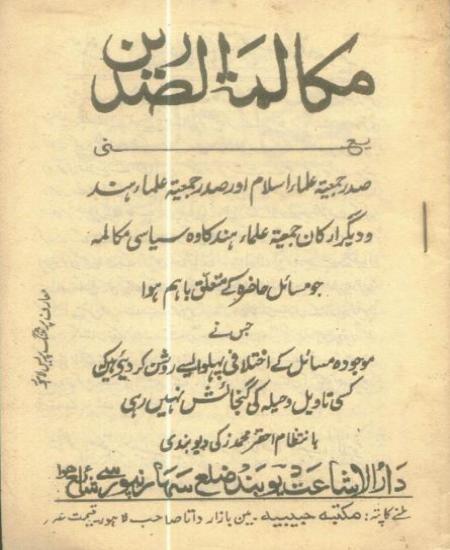 مکالمۃ الصدرین
یعنی
صدر جمعیۃ علماء اسلام اور صدر جمعیۃ علماء ہند
و دیگر ارکان جمعیۃ علماء ہند کا وہ سیاسی مکالمہ
جو مسائل حاضرہ کے متعلق باہم ہوا
جس نے
موجودہ مسائل کے اختلافی پہلو ایسے روشن کر دیئے ہیں کہ
کسی تاویل و حیلہ کی گنجائش نہیں رہی
باہتمام احقر محمد زکی دیوبندی
دارالاشاعت دیوبند ضلع سہارنپور سے شائع ہوا
ملنے کا پتہ: مکتبہ حبیبیہ۔ مین بازار داتا صاحب لاہور۔ قیمت